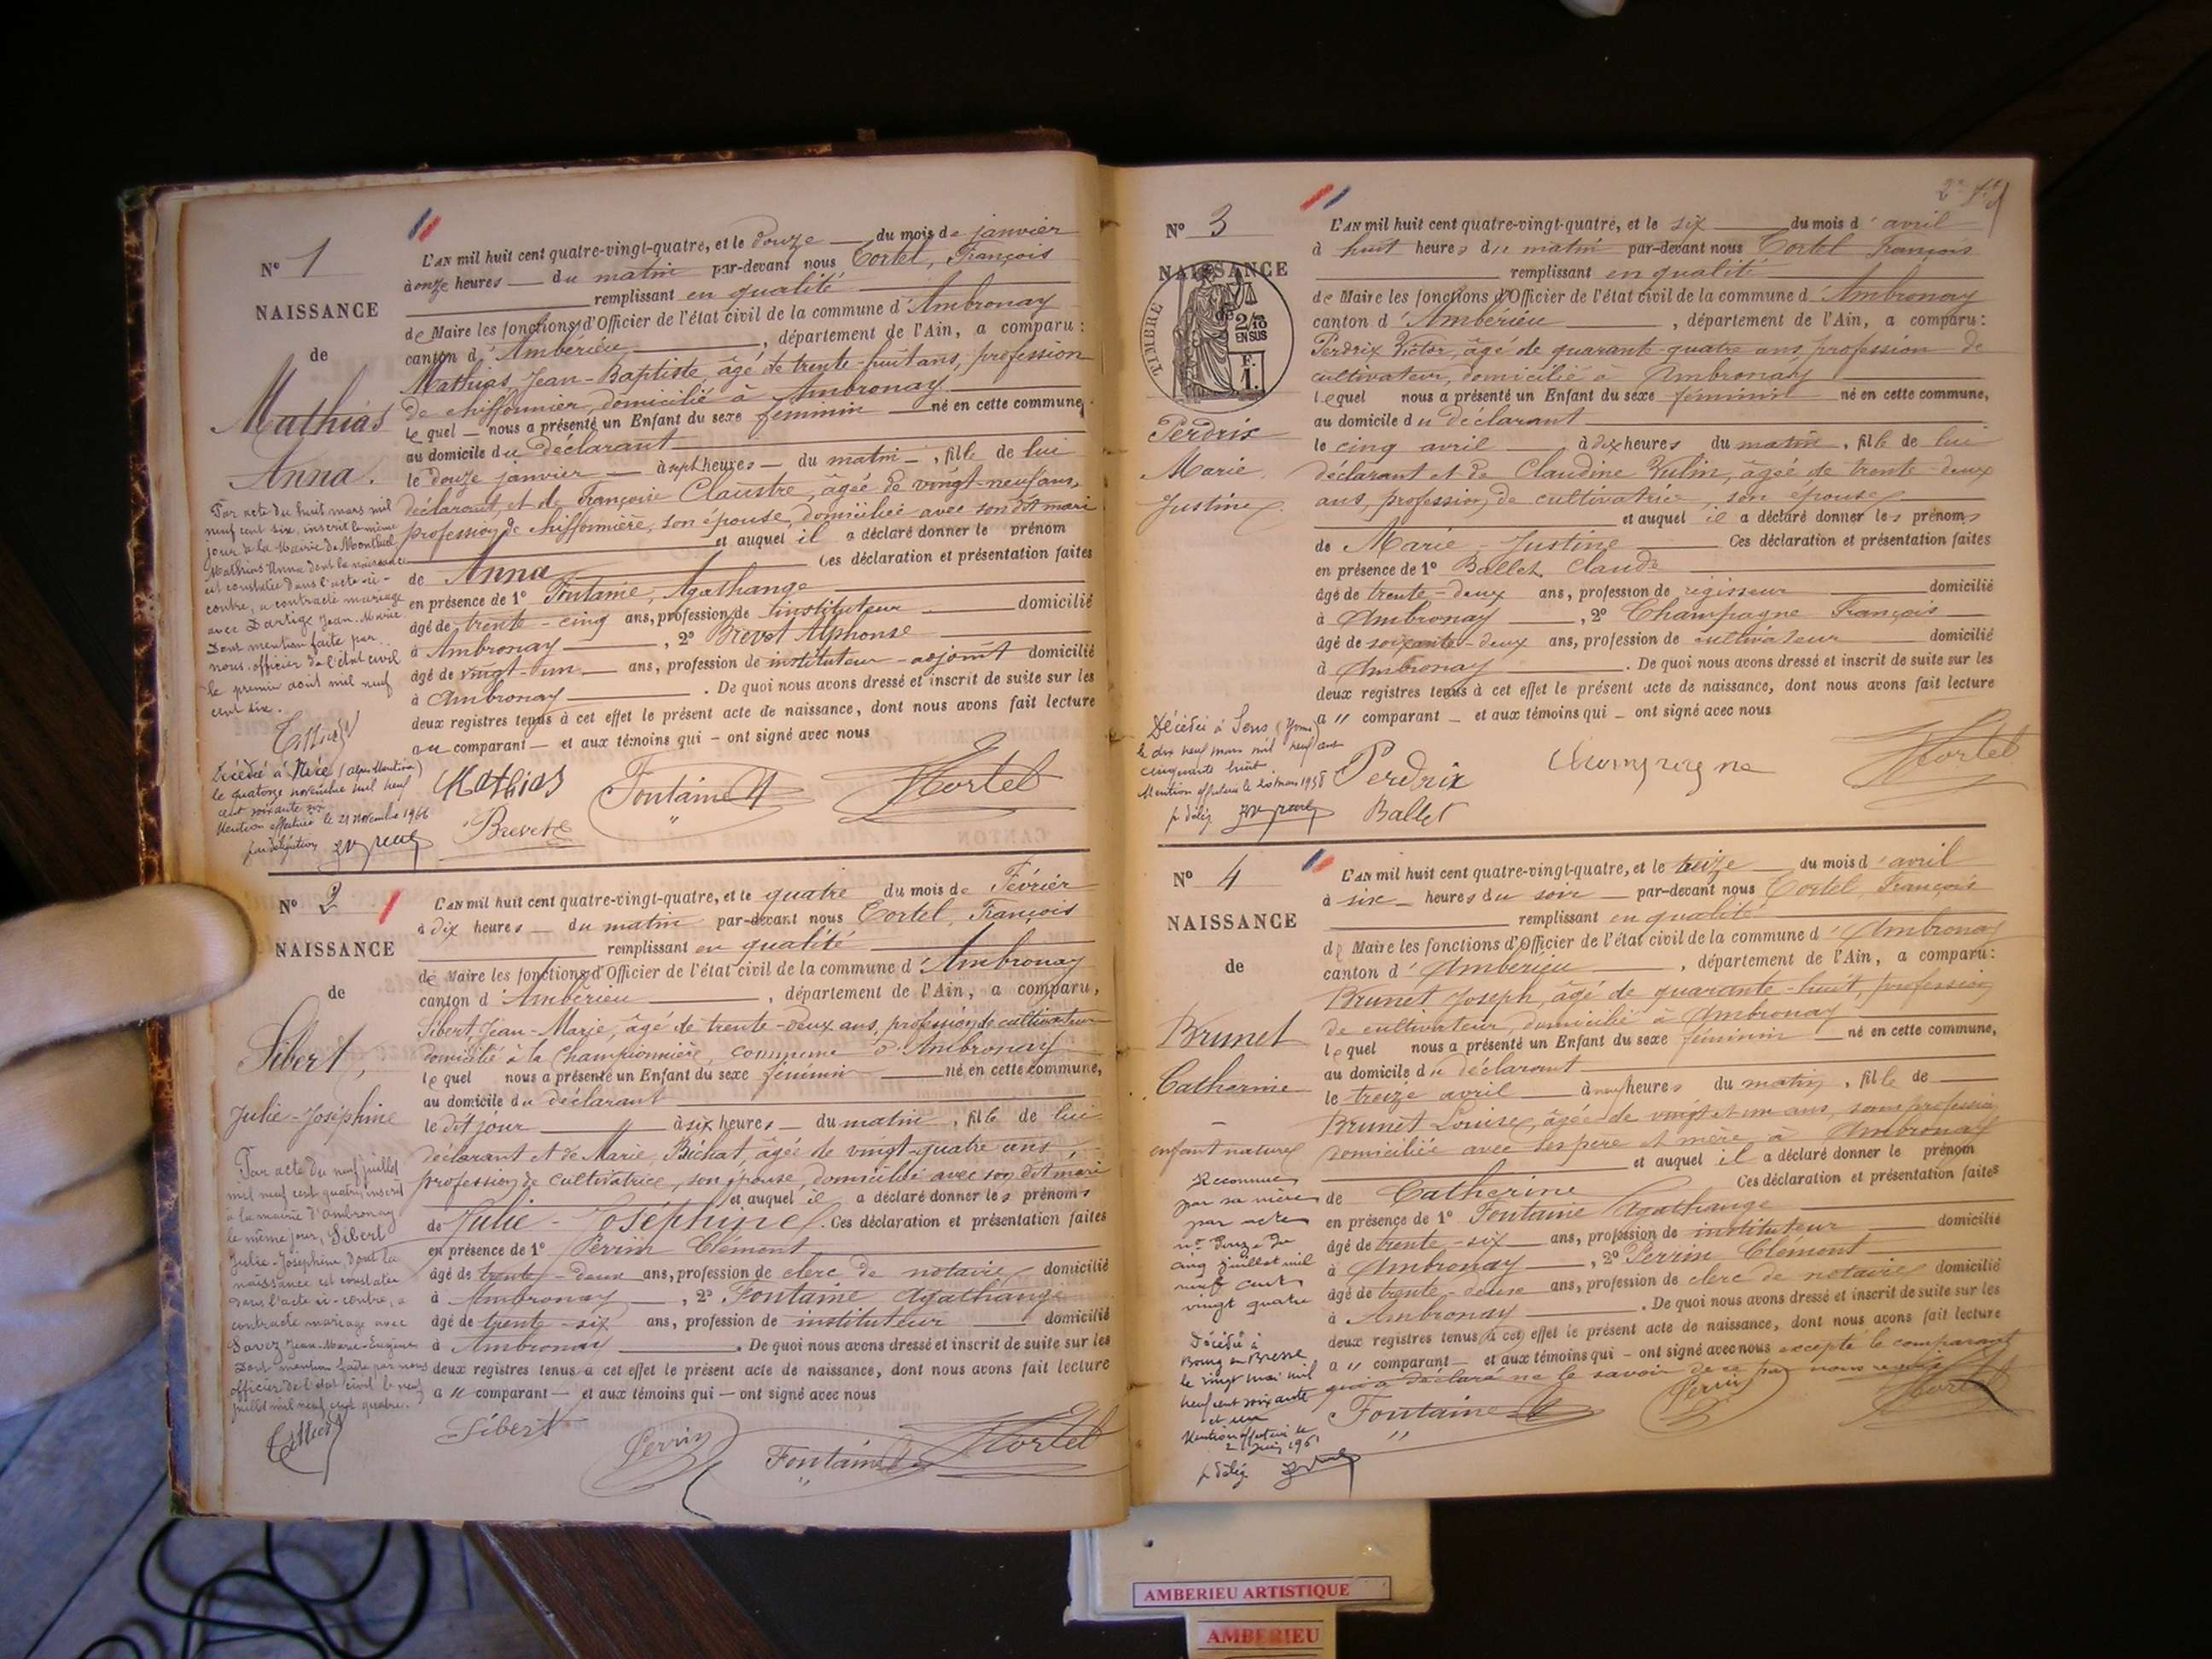 Nº 1
NAISSANCE
de
Mathias
Anna.
Par acte du huit mars mil
neuf cent six, inscrit le même
jour à la Mairie de Montluel
Mathias Anna dont la naissance
est constatée dans l'acte ci-
contre, a contracté mariage
avec Dartige Jean-Marie
Dont mention faite par
nous, officier de l'état civil
le premier août mil neuf
cent six.
Décédée à Nice (Alpes Maritimes)
le quatorze novembre mil neuf
cent soixante six
Mention effectuée le 21 novembre 1966
par délégation
L'AN mil huit cent quatre-vingt-quatre, et le douze du mois de janvier
à onze heures du matin par-devant nous Tortel, François
remplissant en qualité
de Maire les fonctions d'Officier de l'état civil de la commune d'Ambronay
canton d'Ambérieu, département de l'Ain, a comparu:
Mathias, Jean-Baptiste, âgé de trente-huit ans, profession
de chiffonnier, domicilié à Ambronay
lequel nous a présenté un Enfant du sexe féminin né en cette commune,
au domicile du déclarant
le douze janvier à sept heures du matin, fille de lui
déclarant, et de Françoise Claustre, âgée de vingt-neuf ans,
profession de chiffonnière, son épouse, domiciliée avec son dit mari
et auquel il a déclaré donner le prénom
de Anna Ces déclaration et présentation faites
en présence de 1º Fontaine, Agathange
âgé de trente-cinq ans, profession de instituteur domicilié
à Ambronay, 2º Brevet Alphonse
âgé de vingt-un ans, profession de instituteur-adjoint domicilié
à Ambronay. De quoi nous avons dressé et inscrit de suite sur les
deux registres tenus à cet effet le présent acte de naissance, dont nous avons fait lecture
au comparant et aux témoins qui ont signé avec nous
Mathias Fontaine A Tortel
Brevet
Nº 2
NAISSANCE
de
Sibert,
Julie-Joséphine
Par acte du neuf juillet
mil neuf cent quatre, inscrit
à la mairie d'Ambronay
le même jour, Sibert
Julie-Joséphine, dont la
naissance est constatée
dans l'acte ci-contre, a
contracté mariage avec
Savey Jean-Marie-Eugène
Dont mention faite par nous
officier de l'état civil le neuf
juillet mil neuf cent quatre.
L'AN mil huit cent quatre-vingt-quatre, et le quatre du mois de Février
à dix heures du matin par-devant nous Tortel, François
remplissant en qualité
de Maire les fonctions d'Officier de l'état civil de la commune d'Ambronay
canton d'Ambérieu, département de l'Ain, a comparu,
Sibert, Jean-Marie, âgé de trente-deux ans, profession de cultivateur
domicilié à la Championnière, commune d'Ambronay
lequel nous a présenté un Enfant du sexe féminin né en cette commune,
au domicile du déclarant
le dit jour à six heures du matin, fille de lui
déclarant et de Marie Bichat, âgée de vingt-quatre ans
profession de cultivatrice, son épouse, domiciliée avec son dit mari
et auquel il a déclaré donner les prénoms
de Julie-Joséphine. Ces déclaration et présentation faites
en présence de 1º Perrin Clément
âgé de trente-deux ans, profession de clerc de notaire domicilié
à Ambronay, 2º Fontaine Agathange
âgé de trente-six ans, profession de instituteur domicilié
à Ambronay. De quoi nous avons dressé et inscrit de suite sur les
deux registres tenus à cet effet le présent acte de naissance, dont nous avons fait lecture
au comparant et aux témoins qui ont signé avec nous
Sibert Perrin Fontaine A Tortel
Nº 3
NAISSANCE
de
TIMBRE
2/10
EN SUS
F.
1.
Perdrix
Marie
Justine
Décédée à Sens (Yonne)
le dix neuf mars mil neuf cent
cinquante huit
Mention effectuée le 20 mars 1958
p délég
L'AN mil huit cent quatre-vingt-quatre, et le six du mois d'avril
à huit heures du matin par-devant nous Tortel François
remplissant en qualité
de Maire les fonctions d'Officier de l'état civil de la commune d'Ambronay
canton d'Ambérieu, département de l'Ain, a comparu:
Perdrix Victor, âgé de quarante-quatre ans, profession de
cultivateur, domicilié à Ambronay
lequel nous a présenté un Enfant du sexe féminin né en cette commune,
au domicile du déclarant
le cinq avril à dix heures du matin, fille de lui
déclarant et de Claudine Vulin, âgée de trente-deux
ans, profession de cultivatrice, son épouse
et auquel il a déclaré donner les prénoms
de Marie-Justine Ces déclaration et présentation faites
en présence de 1º Ballet Claude
âgé de trente-deux ans, profession de régisseur domicilié
à Ambronay, 2º Champagne François
âgé de soixante-deux ans, profession de cultivateur domicilié
à Ambronay. De quoi nous avons dressé et inscrit de suite sur les
deux registres tenus à cet effet le présent acte de naissance, dont nous avons fait lecture
au comparant et aux témoins qui ont signé avec nous
Perdrix Champagne Tortel
Ballet
Nº 4
NAISSANCE
de
Brunet
Catherine
enfant naturel
Reconnue
par sa mère
par acte
nº douze du
cinq juillet mil
neuf cent
vingt quatre
Décédée à
Bourg en Bresse
le vingt mai mil
neuf cent soixante
et un
Mention effectuée le
2 Juin 1961
p délég
L'AN mil huit cent quatre-vingt-quatre, et le treize du mois d'avril
à six heures du soir par-devant nous Tortel, François
remplissant en qualité
de Maire les fonctions d'Officier de l'état civil de la commune d'Ambronay
canton d'Ambérieu, département de l'Ain, a comparu:
Brunet Joseph, âgé de quarante-huit, profession
de cultivateur, domicilié à Ambronay
lequel nous a présenté un Enfant du sexe féminin né en cette commune,
au domicile du déclarant
le treize avril à neuf heures du matin, fille de
Brunet Louise, âgée de vingt et un ans, sans profession
domiciliée avec ses père et mère à Ambronay
et auquel il a déclaré donner le prénom
de Catherine Ces déclaration et présentation faites
en présence de 1º Fontaine Agathange
âgé de trente-six ans, profession de instituteur domicilié
à Ambronay, 2º Perrin Clément
âgé de trente-deux ans, profession de clerc de notaire domicilié
à Ambronay. De quoi nous avons dressé et inscrit de suite sur les
deux registres tenus à cet effet le présent acte de naissance, dont nous avons fait lecture
au comparant et aux témoins qui ont signé avec nous excepté le comparant
qui a déclaré ne le savoir de ce par nous requis
Fontaine A Perrin Tortel
AMBERIEU ARTISTIQUE
AMBERIEU